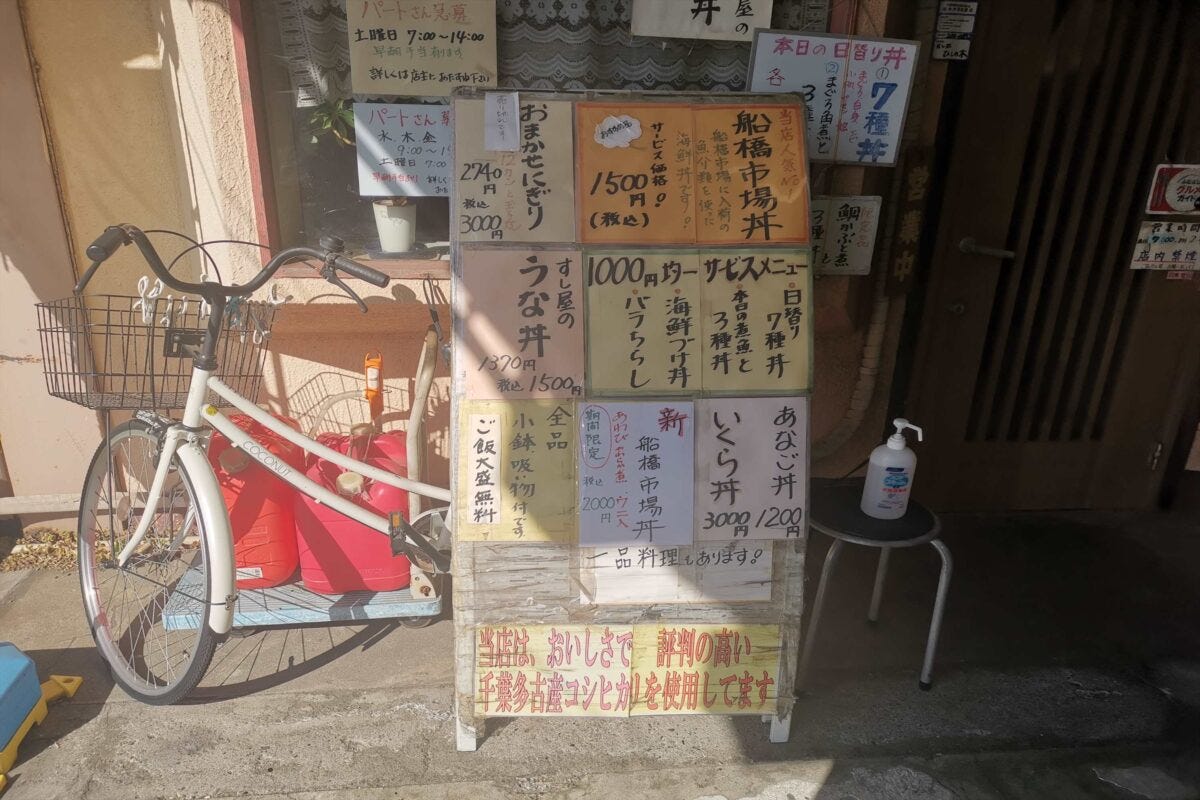 パートさん募
土曜日 7:00〜14:00
早朝手当有ります
詳しくは店主におたずね下さい
パートさん 募
水、木、金
9:00〜1
土曜日 7:00
丼
屋の
本日の日替り丼
① 7種丼
②まぐろ角煮と
各
鯛かぶと煮
営業中
営業時間
店内禁煙
おまかせにぎり
2740円
税込
3000円
当店人気No
船橋市場丼
船橋市場に入荷の
魚介類を使った
海鮮丼です!
おすすめの
サービス価格!
1500円
(税込)
すし屋の
うな丼
1370円
税込 1500円
1000円均一 サービスメニュー
・日替り
7種丼
・本日の煮魚と
3種丼
・海鮮づけ丼
・バラちらし
全品
小鉢、吸い物付です
ご飯大盛無料
新
船橋市場丼
あわびやわらか煮・ウニ入
期間限定
税込
2000円
あなご丼
1200円
いくら丼
3000円
一品料理もあります!
当店は、おいしさで 評判の高い
千葉多古産コシヒカリを使用してます
COCONUT